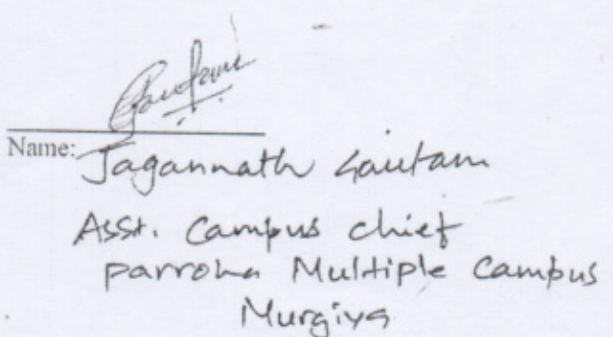 Gautam
Name: Jagannath Gautam
Asst. Campus chief
parroha Multiple Campus
Murgiya